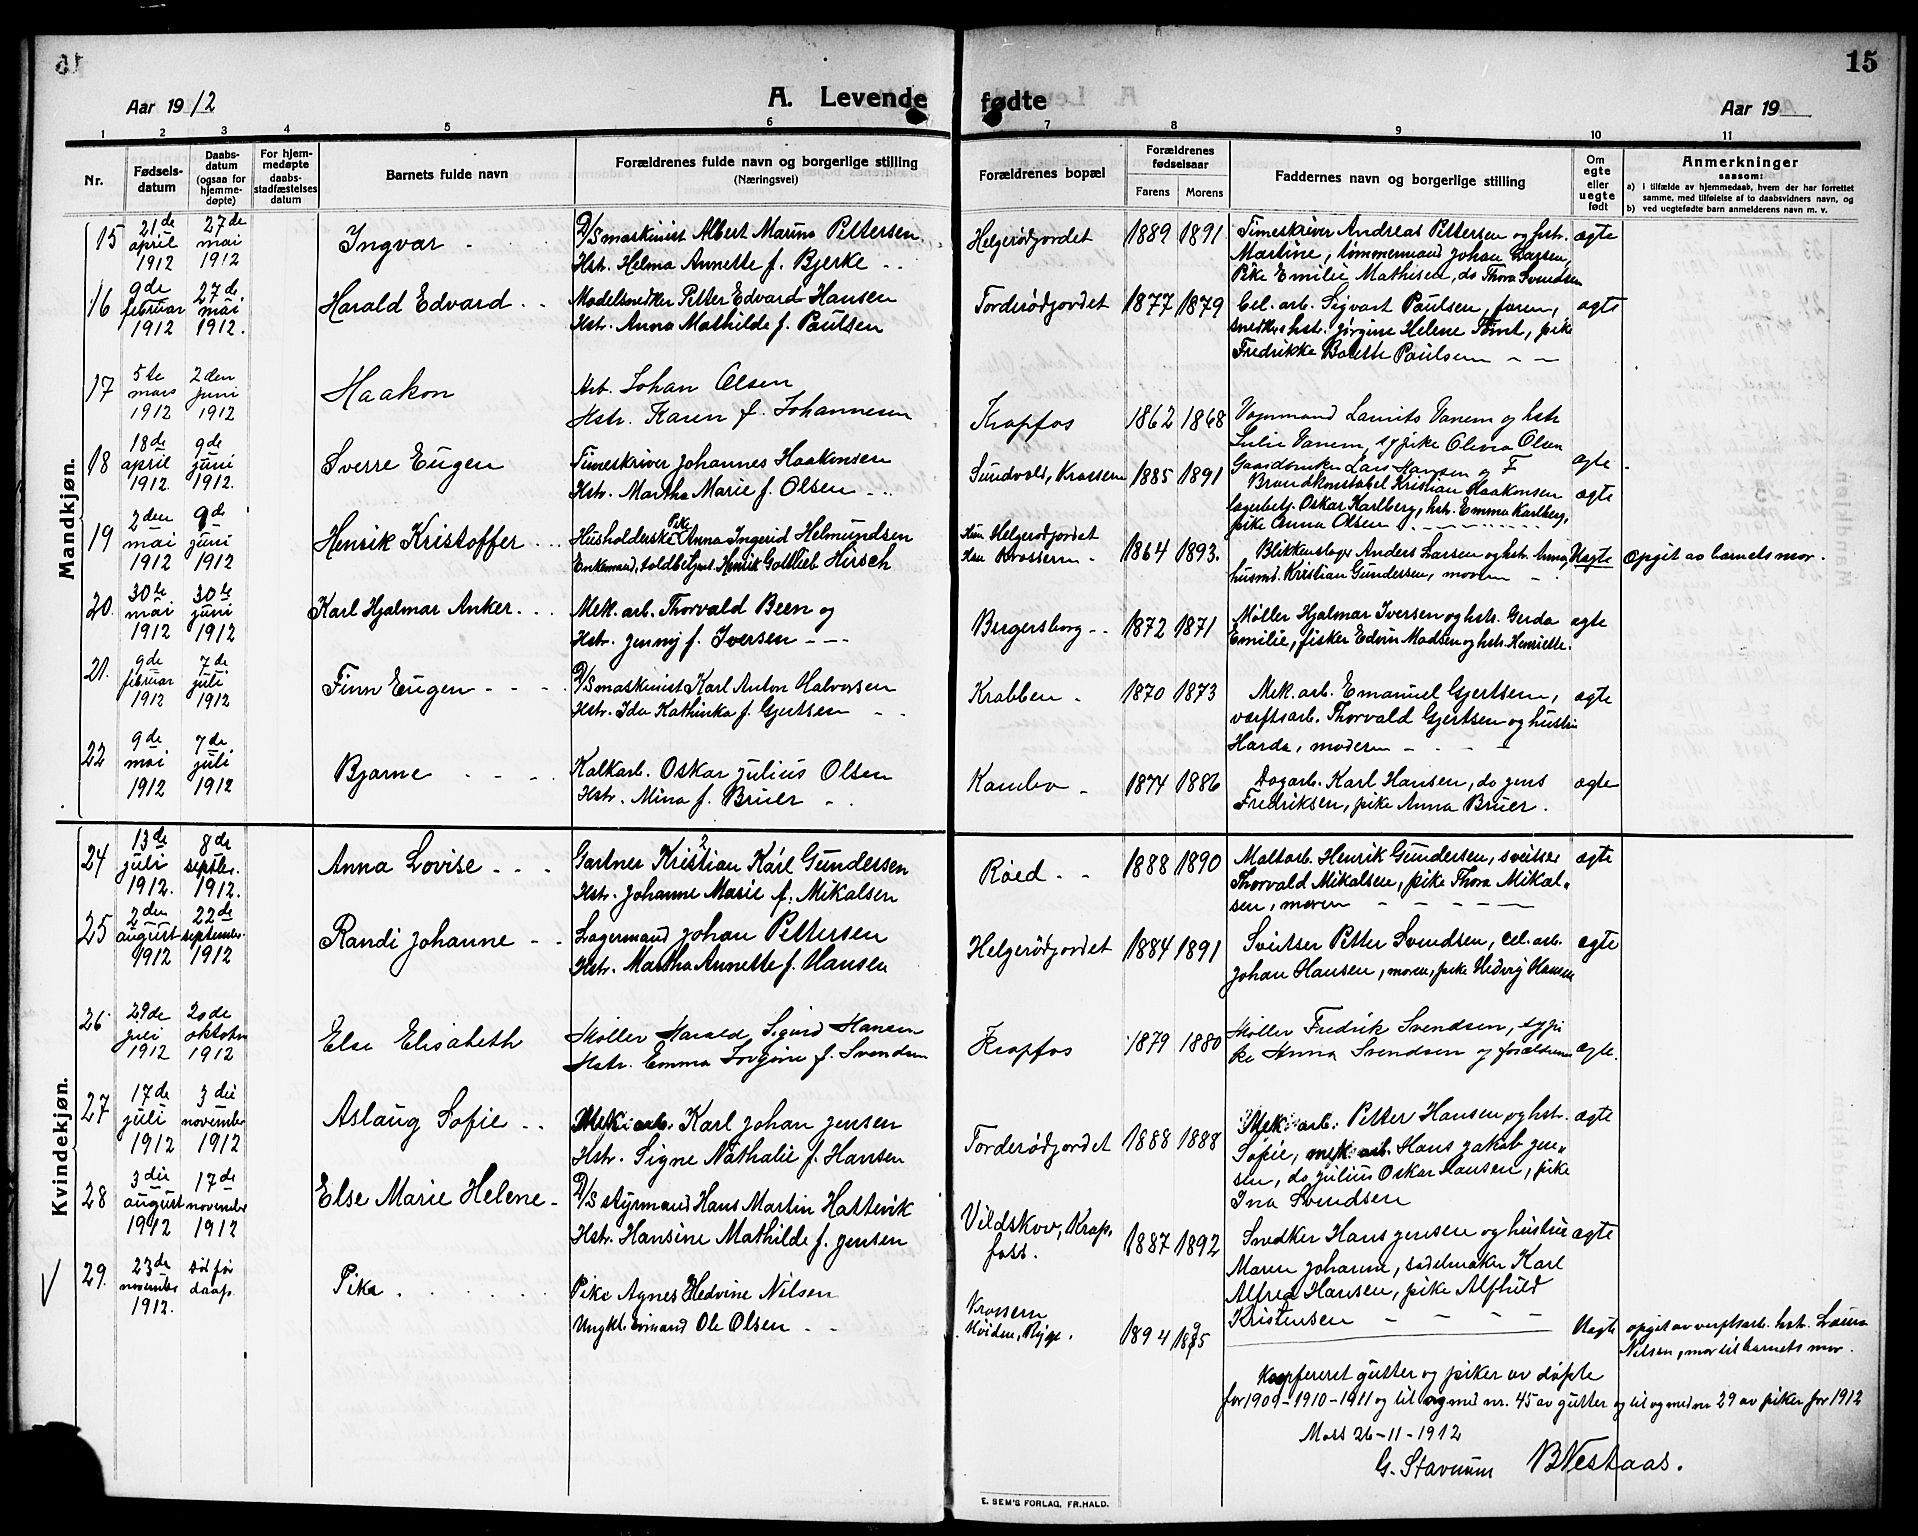 15
Aar 1912
A. Levende fødte
Aar 19
1 2 3 4 5 6 7 8 9 10 11
Nr.
Fødsels-
datum
Daabs-
datum
(ogsaa for
hjemme-
døpte)
For hjem-
medøpte
daabs-
stadfæstelses
datum
Barnets fulde navn
Forældrenes fulde navn og borgerlige stilling
(Næringsvei)
Forældrenes bopæl
Forældrenes
fødselsaar
Farens Morens
Faddernes navn og borgerlige stilling
Om
egte
eller
uegte
født
Anmerkninger
saasom:
a) i tilfælde av hjemmedaab, hvem der har forrettet
samme, med tilføielse af to daabsvidners navn, og
b) ved uegtefødte barn anmelderens navn m. v.
Mandkjøn.
15
21de april 1912
27de mai 1912
Ingvar
D/S maskinist Albert Marius Pettersen
Hst. Helma Annette f. Bjerke
Helgerødjordet
1889 1891
Timeskriver Andreas Pettersen og hst.
Martine, tømmermand Johan Larsen,
Pike Emilie Mathisen, do Thora Svendsen
ægte
16
9de februar 1912
27de mai 1912.
Harald Edvard
Modelsnedker Petter Edvard Hansen
Hst. Anna Mathilde f. Paulsen
Torderødjordet
1877 1879
Cel. arb. Sigvart Paulsen, faren,
snedkers hst. Jørgine Helene Tømt, pike
Fredrikke Bolette Paulsen
ægte
17
5te mars 1912
2den juni 1912
Haakon
Arb. Johan Olsen
Hstr. Karen f. Johannesen
Krapfos
1862 1868
Vognmand Laurits Vanem og hstr
Julie Vanem, sypike Olivia Olsen
Gaardbruker Lars Hansen og F
ægte
18
18de april 1912.
9de juni 1912.
Sverre Eugen
Timeskriver Johannes Haakonsen
Hst. Martha Marie f. Olsen
Sundvold, Krossern
1885 1891
Brandkonstabel Kristian Haakonsen
lagerbetj. Oskar Karlberg, hst. Emma Karlberg,
pike Anna Olsen
ægte
19
2den mai 1912
9de juni 1912
Henrik Kristoffer
Husholderske Pike Anna Ingerid Helmundsen
Enkemand, toldbetjent Henrik Gottlieb Hirsch
Hun Helgerødjordet
Han Krossern
1864 1893.
Blikkenslager Anders Larsen og hst. Anna,
husmd. Kristian Gundersen, moren
Uægte
Opgit av barnets mor.
20.
30te mai 1912
30te juni 1912
Karl Hjalmar Anker
Mek. arb. Thorvald Been og
Hst. Jenny f. Iversen
Birgersborg
1872 1871
Møller Hjalmar Iversen og hst. Gerda
Emilie, fisker Edvin Madsen og hst. Henriette.
ægte
21.
9de februar 1912
7de juli 1912
Finn Eugen
D/S maskinist Karl Anton Halvorsen
Hst. Ida Kathinka f. Gjertsen
Krabben
1870 1873
Mek. arb. Emanuel Gjertsen,
værftsarb. Thorvald Gjertsen og hustru
Harda, moderen
ægte
22
9de mai 1912
7de juli 1912
Bjarne
Kalkarb. Oskar Julius Olsen
Hst. Mina f. Bruer
Kambo
1874 1886
Dagarb. Karl Hansen, do Jens
Fredriksen, pike Anna Bruer.
ægte
Kvindekjøn.
24
13de juli 1912.
8de septbr. 1912.
Anna Lovise
Gartner Kristian Karl Gundersen
Hst. Johanne Marie f. Mikalsen
Røed
1888 1890
Maltarb. Henrik Gundersen, sveitser
Thorvald Mikalsen, pike Thora Mikal-
sen, moren
ægte
25
2den august 1912
22de september 1912
Randi Johanne
Lagermand Johan Pettersen
Hst. Martha Annette f. Hansen
Helgerødjordet
1884 1891
Sveitser Petter Svendsen, cel. arb.
Johan Hansen, moren, pike Hedvig Hansen
ægte
26
29de juli 1912
20de oktober 1912
Else Elisabeth
Møller Harald Sigurd Hansen
Hstr. Emma Jorgine f. Svendsen
Krapfos
1879 1880
Møller Fredrik Svendsen, sypi
ke Anna Svendsen og forældrene
ægte.
27
17de juli 1912
3die november 1912
Aslaug Sofie
Mek. arb. Karl Johan Jensen
Hst. Signe Nathalie f. Hansen
Torderødjordet
1888 1888
Mek. arb. Petter Hansen og hst.
Sofie, mek. arb. Hans Jakob Jen-
sen, do Julius Oskar Hansen, pike
Ina Svendsen
ægte
28
3die august 1912
17de november 1912
Else Marie Helene
D/S styrmand Hans Martin Hattevik
Hst. Hansine Mathilde f. Jensen
Vildskov, Krap-
foss.
1887 1892
Snedker Hans Jensen og hustru
Maren Johanne, sadelmaker Karl
Alfred Hansen, pike Alfhild
Kristensen
ægte
29.
23de november 1912.
Død før daap.
Pike
Pike Agnes Hedvine Nilsen
Ungkl. sømand Ole Olsen
Krossern
Hviden, Rygge.
1894 1895
Uægte
opgit av verftsarb. hst. Laura
Nilsen, mor til barnets mor.
Konfereret gutter og piker av døpte
for 1909-1910-1911 og til og med nr. 45 av gutter og til og med nr 29 av piker for 1912
Moss 26-11-1912
G. Stavnum B Nestaas.
E. SEM'S FORLAG, FR.HALD.